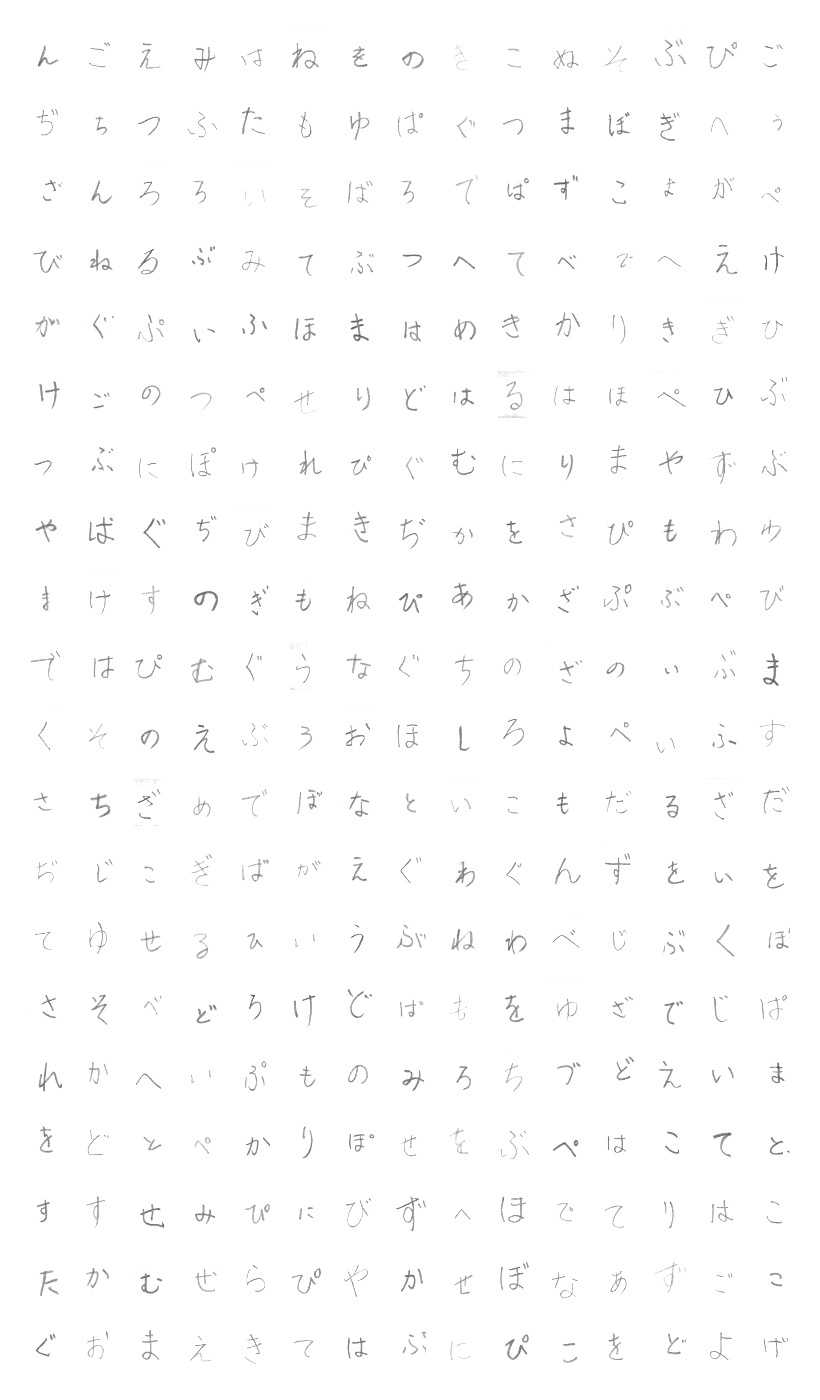 んごえみはねをのきこぬそぶぴご
ぢちつふたもゆぱぐつまぼぎへう
ざんろろいそばろでぱずこよがぺ
びねるぶみてぶつへてべでへえけ
がぐぷいふほまはめきかりきぎひ
けごのつぺせりどはるはほぺひぶ
つぶにぽけれぴぐむにりまやずぶ
やばぐぢびまきぢかをさぴもわゆ
まけすのぎもねぴあかざぷぶぺび
ではぴむぐうなぐちのざのいぶま
くそのえぶろおほしろよぺいふす
さちざめでぼなといこもだるざだ
ぢじこぎばがえぐわぐんずをいを
てゆせるひいうぶねわべじぶくぼ
さそべどろけどぱもをゆざでじぱ
れかへいぷものみろちづどえいま
をどとぺかりぽせをぶぺはこてと
すすせみぴにびずへほでてりはこ
たかむぜらぴやかせぼなあずごこ
ぐおまえきてはぶにぴこをどよげ